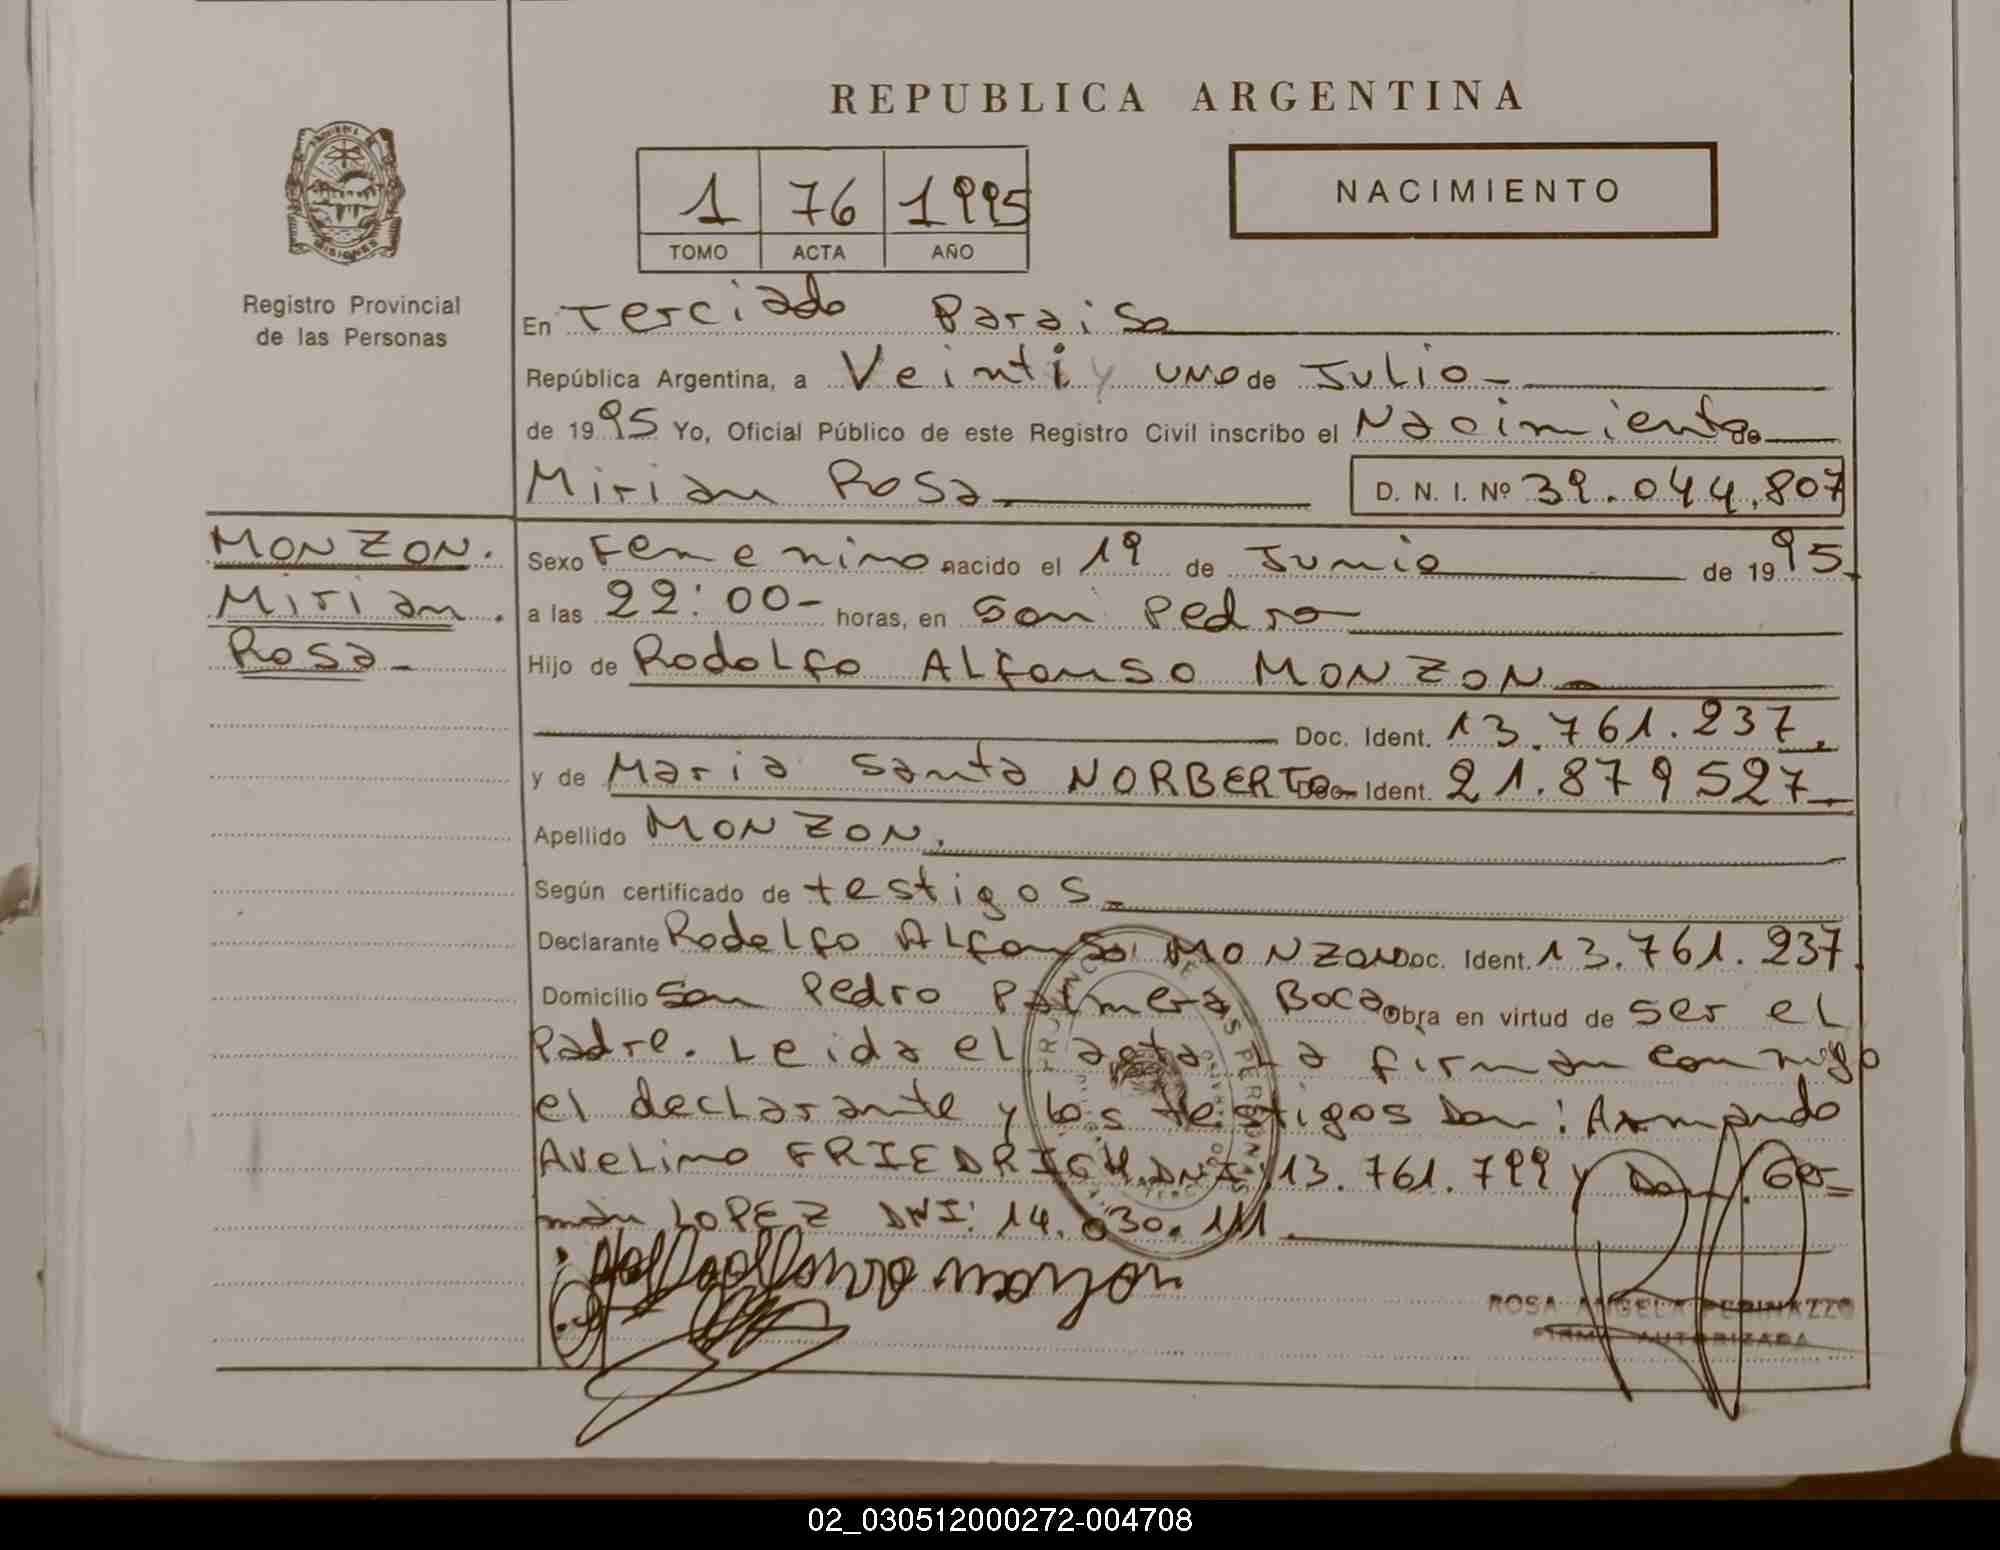 REPUBLICA ARGENTINA
NACIMIENTO
1 76 1995
TOMO ACTA AÑO
MISIONES
Registro Provincial
de las Personas
En Terciado Paraiso
República Argentina, a Veinti y uno de Julio-
de 1995 Yo, Oficial Público de este Registro Civil inscribo el Nacimiento de
Mirian Rosa D. N. I. Nº 39.044.807
MONZON.
Mirian.
Rosa-
Sexo Femenino nacido el 19 de Junio de 1995
a las 22:00- horas, en San Pedro
Hijo de Rodolfo Alfonso MONZON
Doc. Ident. 13.761.237.
y de Maria Santa NORBERTO Doc. Ident. 21.879527
Apellido MONZON.
Según certificado de testigos
Declarante Rodolfo Alfonso MONZON Doc. Ident. 13.761.237
Domicilio San Pedro Palmera Boca Obra en virtud de ser el
Padre. Leida el acta La firman conmigo
el declarante y los testigos Don: Armando
Avelino FRIEDRICH DNI: 13.761.799 y Don. Ger=
mán LOPEZ DNI: 14.030.111
ROSA ANGELA PERINAZZO
FIRMA AUTORIZADA
02_030512000272-004708